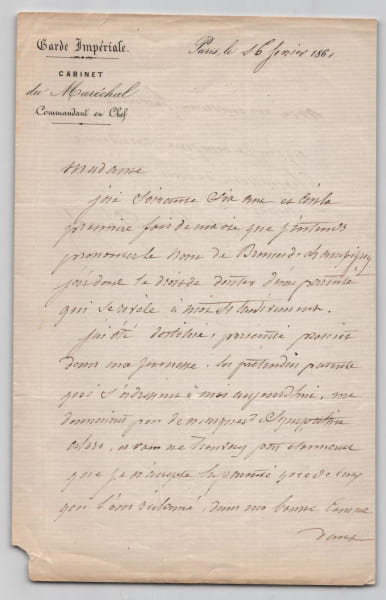 Garde Impériale.
CABINET
du Maréchal
Commandant en Chef
Paris, le 26 février 1861
Madame
j'ai Soixante Six ans et c'est la
première fois de ma vie que j'entends
prononcer le nom de
j'ai donc le droit de douter d'une parenté
qui se révèle à moi si tardivement.
j'ai été persécuté
dans ma jeunesse. les prétendus parents
qui s'adressent à moi aujourd'hui, me
donnaient peu de marques de Sympathie
alors, et vous ne trouverez pas étonnant
que je n'accepte la parenté que de ceux
qui l'ont réclamé, dans ma bonne comme
dans